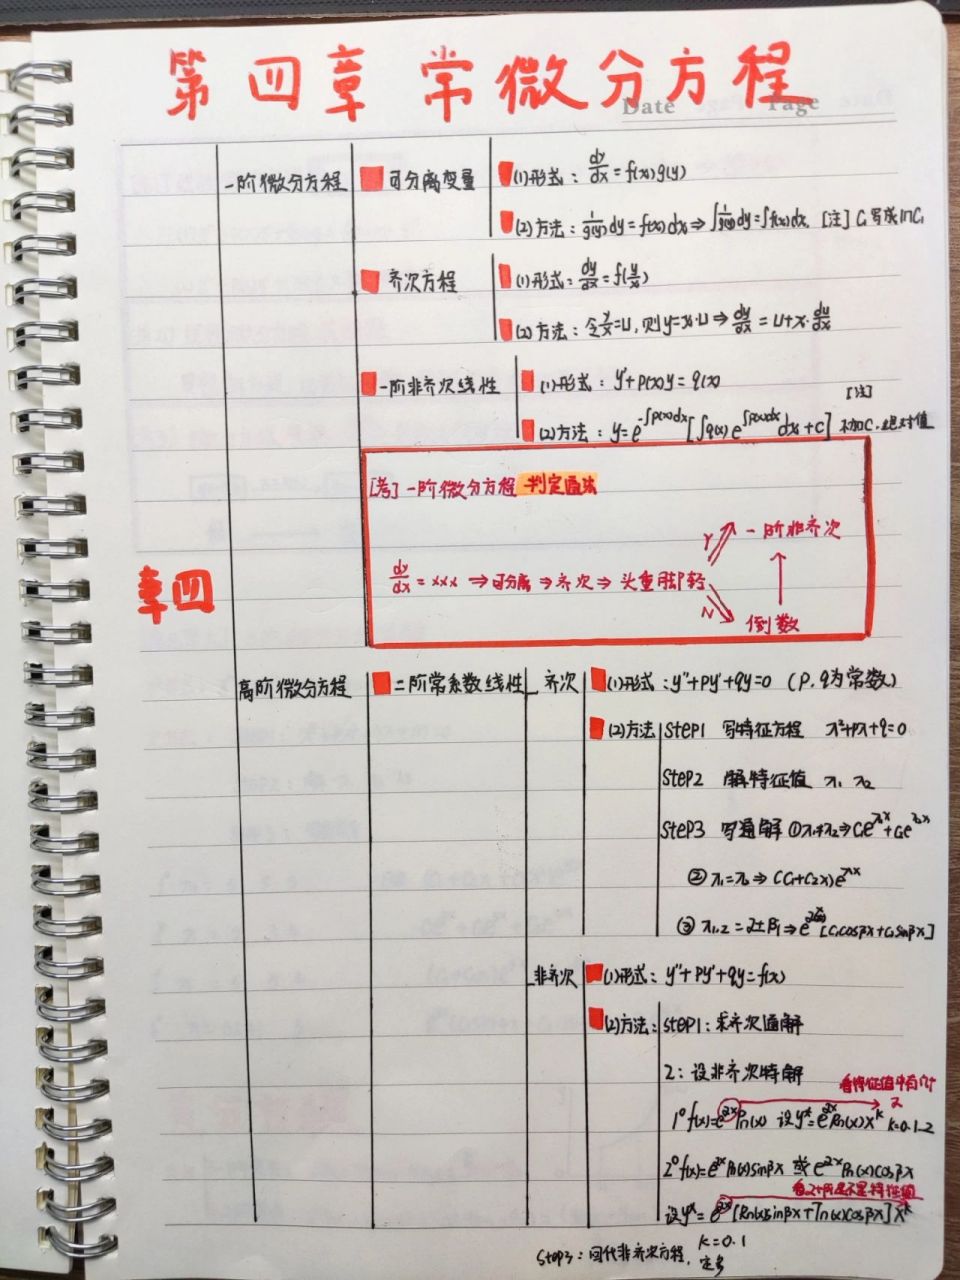 第四章 常微分方程
Date Page
一阶微分方程 可分离变量 (1)形式: dy/dx = f(x)g(y)
(2)方法: 1/g(y) dy = f(x)dx ⇒ ∫1/g(y) dy = ∫f(x)dx, [注] C写成lnC,
齐次方程 (1)形式: dy/dx = f(y/x)
(2)方法: 令y/x=u, 则y=x·u ⇒ dy/dx = u+x·du/dx
一阶非齐次线性 (1)形式: y'+p(x)y = q(x)
[注]
(2)方法: y= e^-∫p(x)dx [∫q(x) e^∫p(x)dx dx + C] 不加C,绝对值
[考]一阶微分方程 判定通法
Y 一阶非齐次
dy/dx = xxx ⇒ 可分离 ⇒ 齐次 ⇒ 头重脚轻
N 倒数
章四
高阶微分方程 二阶常系数线性 齐次 (1)形式: y''+py'+qy=0 (p.q为常数)
(2)方法 Step1 写特征方程 λ²+pλ+q=0
Step2 解特征值 λ₁ λ₂
Step3 写通解 ①λ₁≠λ₂⇒C₁e^λ₁x+C₂e^λ₂x
②λ₁=λ₂ ⇒ (C₁+C₂x)e^λx
③λ₁,₂ = α±βi ⇒ e^αx[C₁cosβx+C₂sinβx]
非齐次 (1)形式: y''+py'+qy=f(x)
(2)方法: step1: 求齐次通解
2: 设非齐次特解
看特征值中有几个
λ
1° f(x)=e^λx Pn(x) 设y*=e^λx Rn(x) x^k k=0.1.2
2° f(x)=e^αx Pn(x)sinβx 或 e^αx Pn(x)cosβx
看α+βi是不是特征值
设y*= e^αx [Rn(x)sinβx+Tn(x)cosβx] x^k
k=0.1
Step3: 回代非齐次方程,